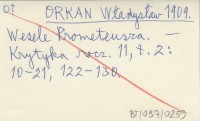 ORKAN Władysław 1909.
Wesele Prometeusza. —
Krytyka rocz. 11, t. 2:
10-21, 122-130.
BT/037/0259